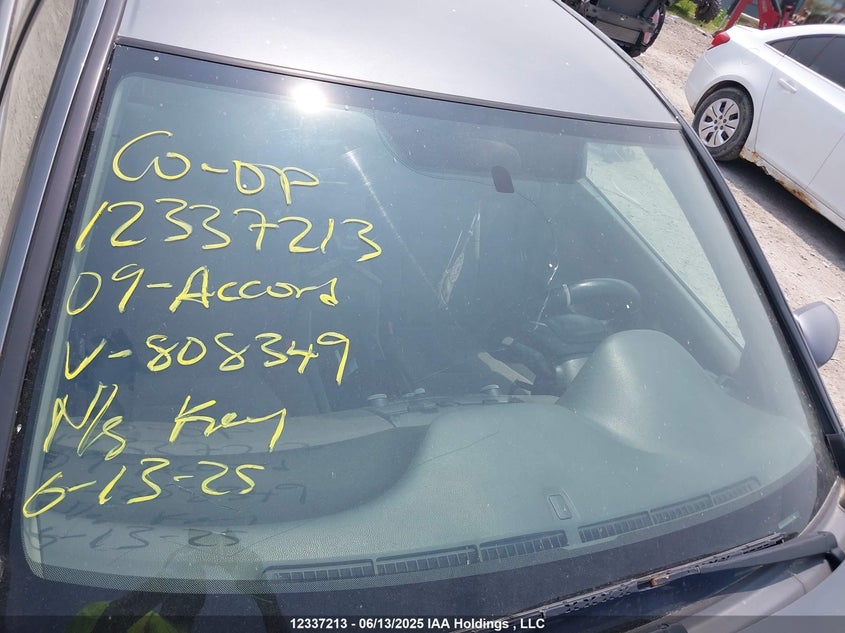 CO-OP
12337213
09-Accord
V-808349
N/S Key
6-13-25
12337213 - 06/13/2025 IAA Holdings , LLC